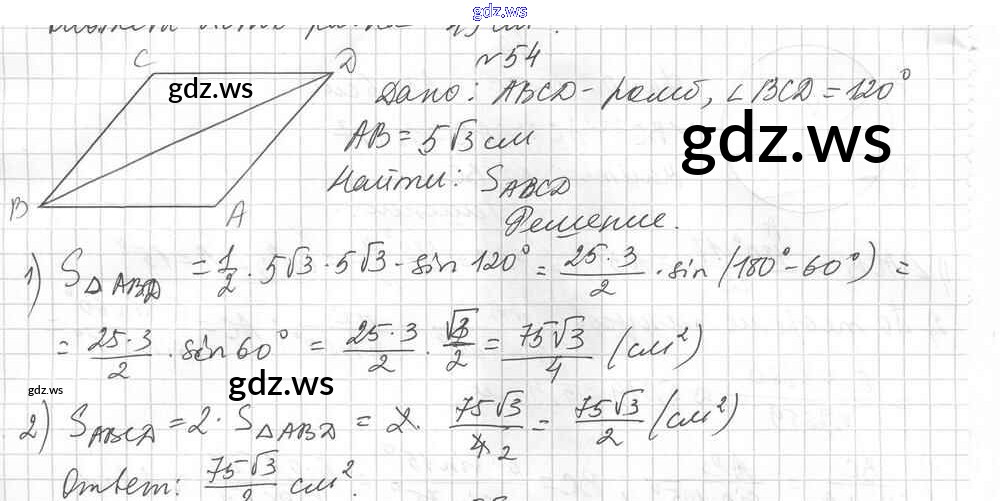 gdz.ws
№54
C D
gdz.ws
Дано: ABCD - ромб, ∠BCD = 120°
AB = 5√3 см
gdz.ws
Найти: S_ABCD
B A
Решение.
1) S_△ABD = 1/2 · 5√3 · 5√3 · sin 120° = 25·3/2 · sin (180° - 60°) =
= 25·3/2 · sin 60° = 25·3/2 · √3/2 = 75√3/4 (см²)
gdz.ws
gdz.ws
2) S_ABCD = 2 · S_△ABD = 2 · 75√3/4 2 = 75√3/2 (см²)
Ответ: 75√3/2 см².